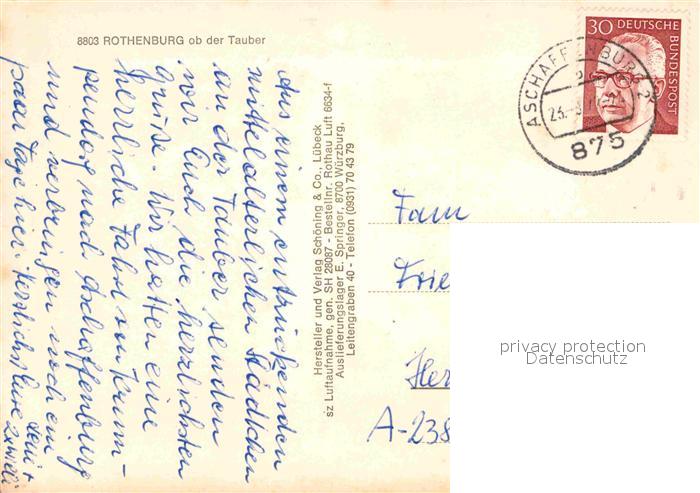 8803 ROTHENBURG ob der Tauber
Aus einem entzückenden
mittelalterlichen Städtchen
an der Tauber senden
wir Euch die herzlichsten
Grüße. Wir hatten eine
herrliche Fahrt von Krum-
pendorf nach Aschaffenburg
und verbringen noch ein
paar Tage hier. Herzlichst Eure
Hersteller und Verlag Schöning & Co., Lübeck
sz Luftaufnahme, gen. SH 28087 - Bestellnr. Rothau Luft 6634-f
Auslieferungslager E. Springer, 8700 Würzburg,
Leitengraben 40 - Telefon (0931) 70 43 79
30 DEUTSCHE
BUNDESPOST
ASCHAFFENBURG 2
875
Fam
A-238
privacy protection
Datenschutz